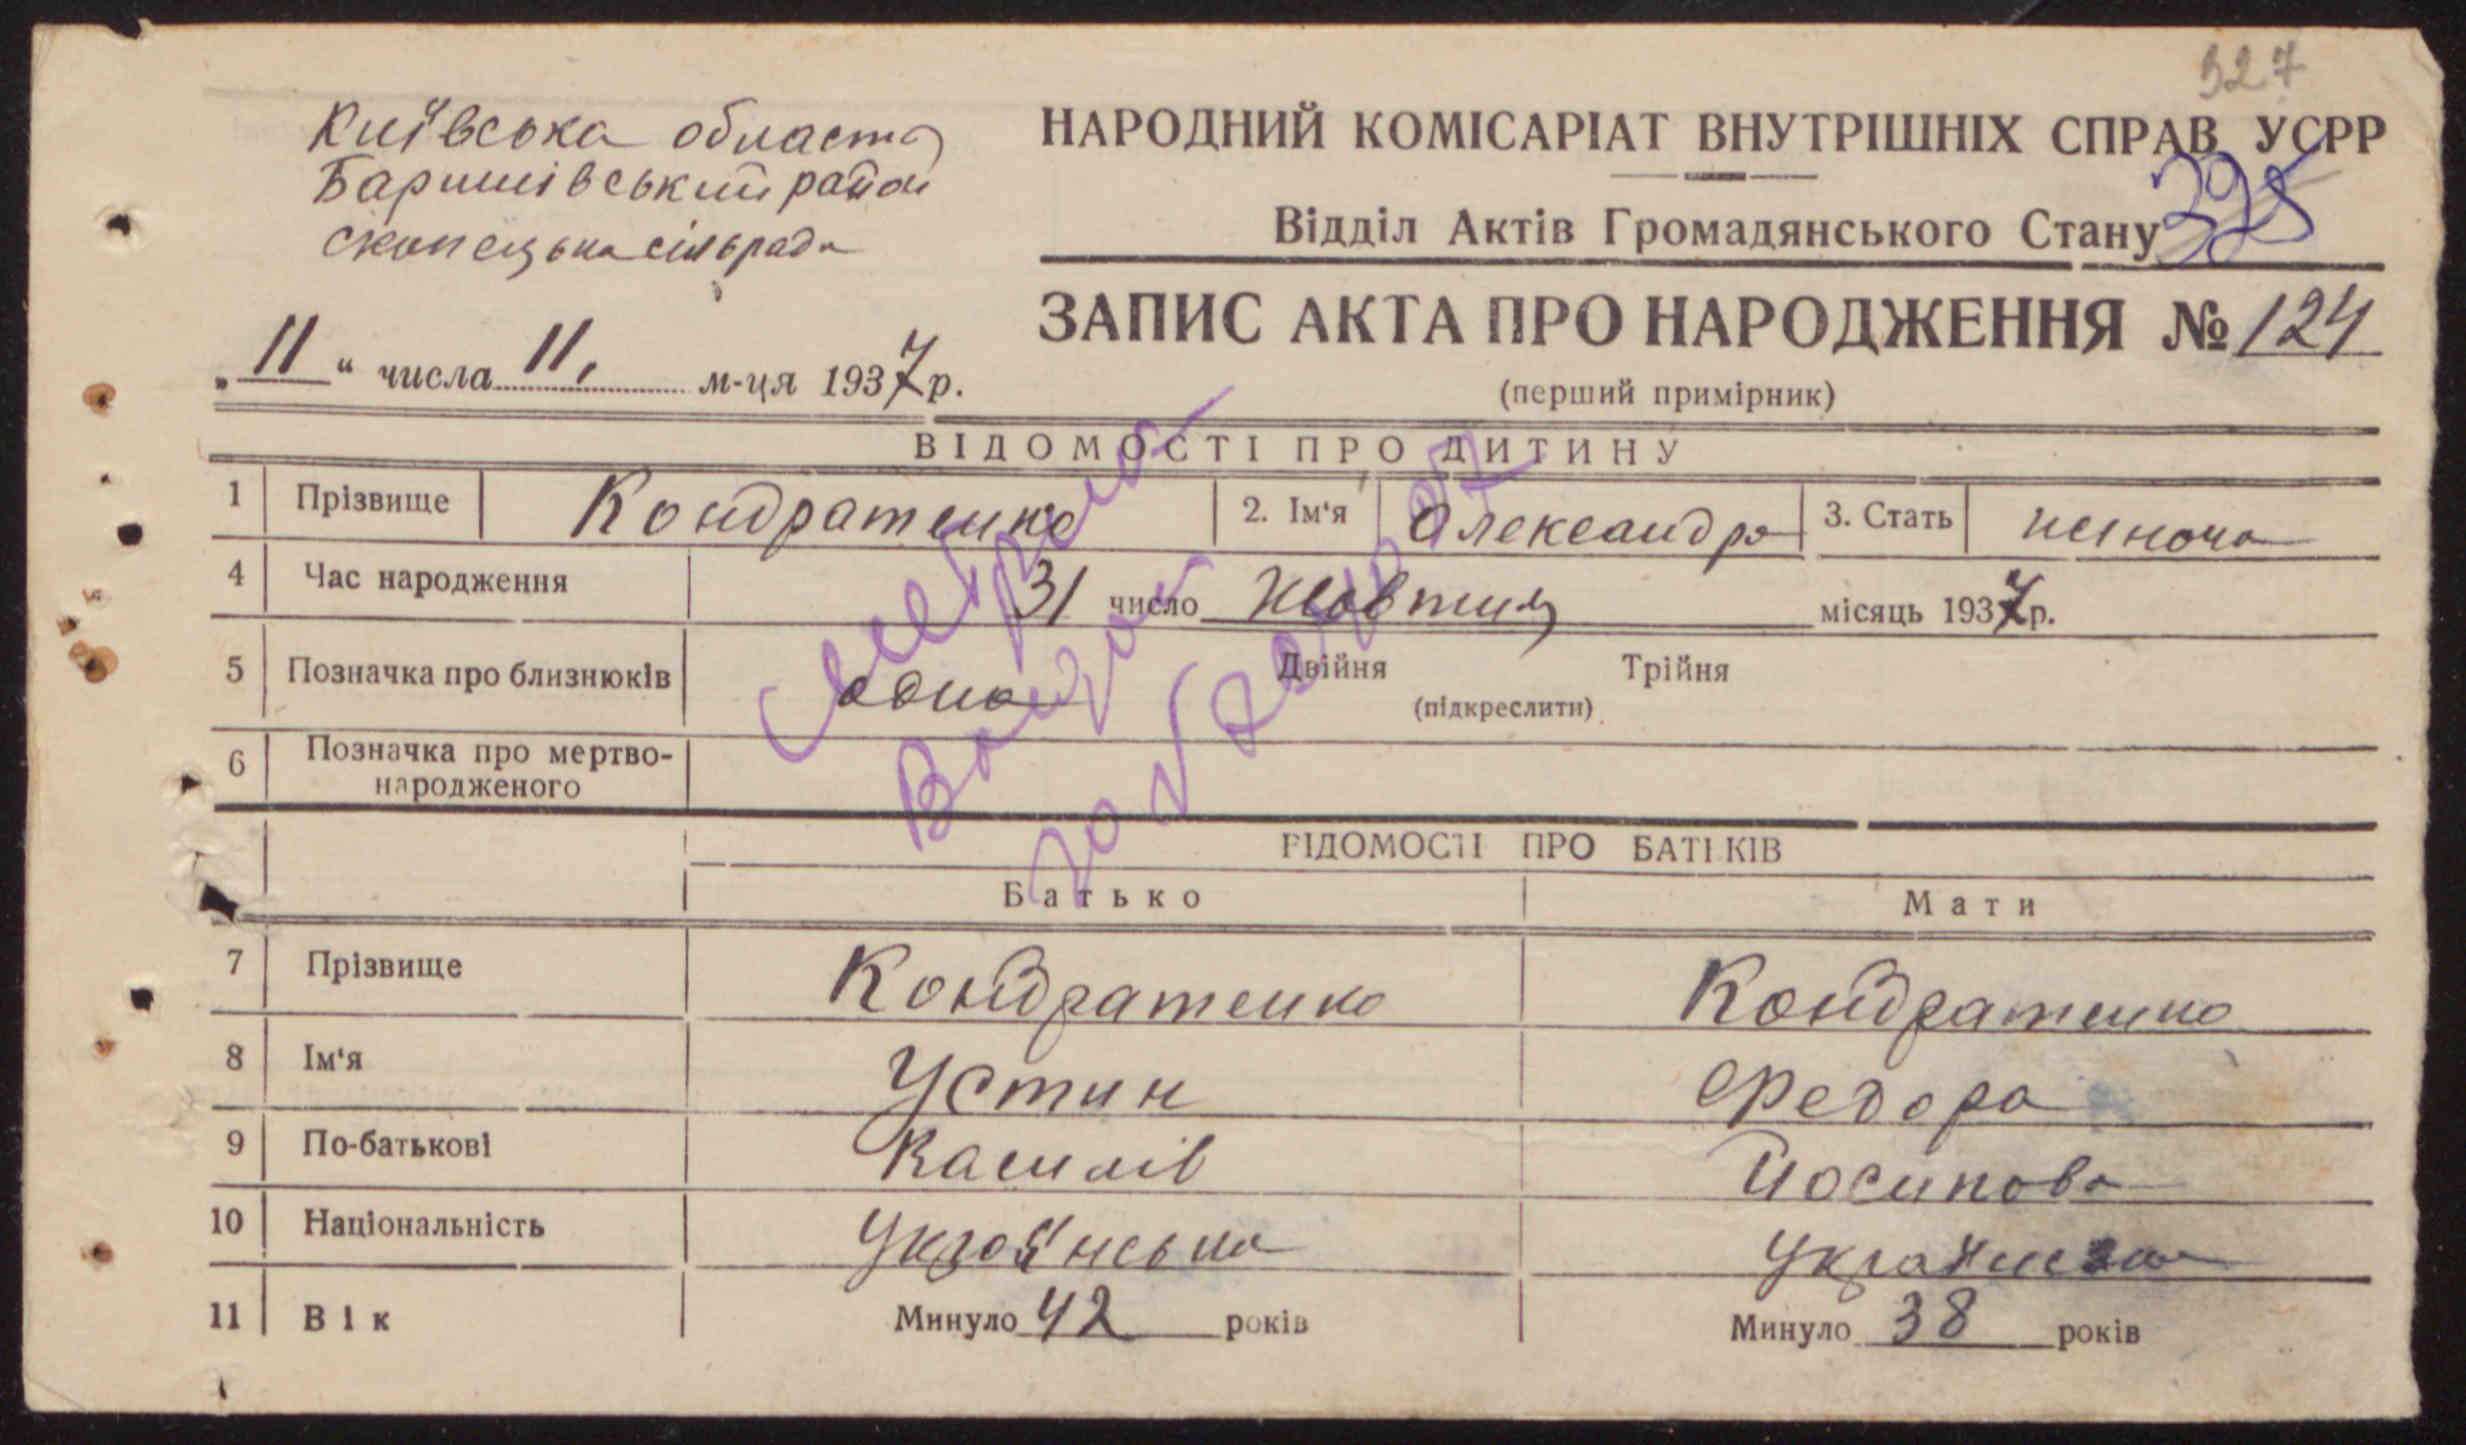 327
Київська область
Баришівський район
Скопецька сільрада
НАРОДНИЙ КОМІСАРІАТ ВНУТРІШНІХ СПРАВ УСРР
395
Відділ Актів Громадянського Стану
ЗАПИС АКТА ПРО НАРОДЖЕННЯ № 124
„11“ числа 11, м-ця 1937 р.
(перший примірник)
ВІДОМОСТІ ПРО ДИТИНУ
1 Прізвище Кондратенко 2. Ім'я Олександра 3. Стать жіноча
4 Час народження 31 число жовтня місяць 1937 р.
5 Позначка про близнюків одна Двійня Трійня
(підкреслити)
6 Позначка про мертво-
народженого
Метрика
ВІДОМОСТІ ПРО БАТЬКІВ
Батько Мати
7 Прізвище Кондратенко Кондратенко
8 Ім'я Устин Федора
9 По-батькові Василів Йосипова
10 Національність Українська Українська
11 Вік Минуло 42 років Минуло 38 років